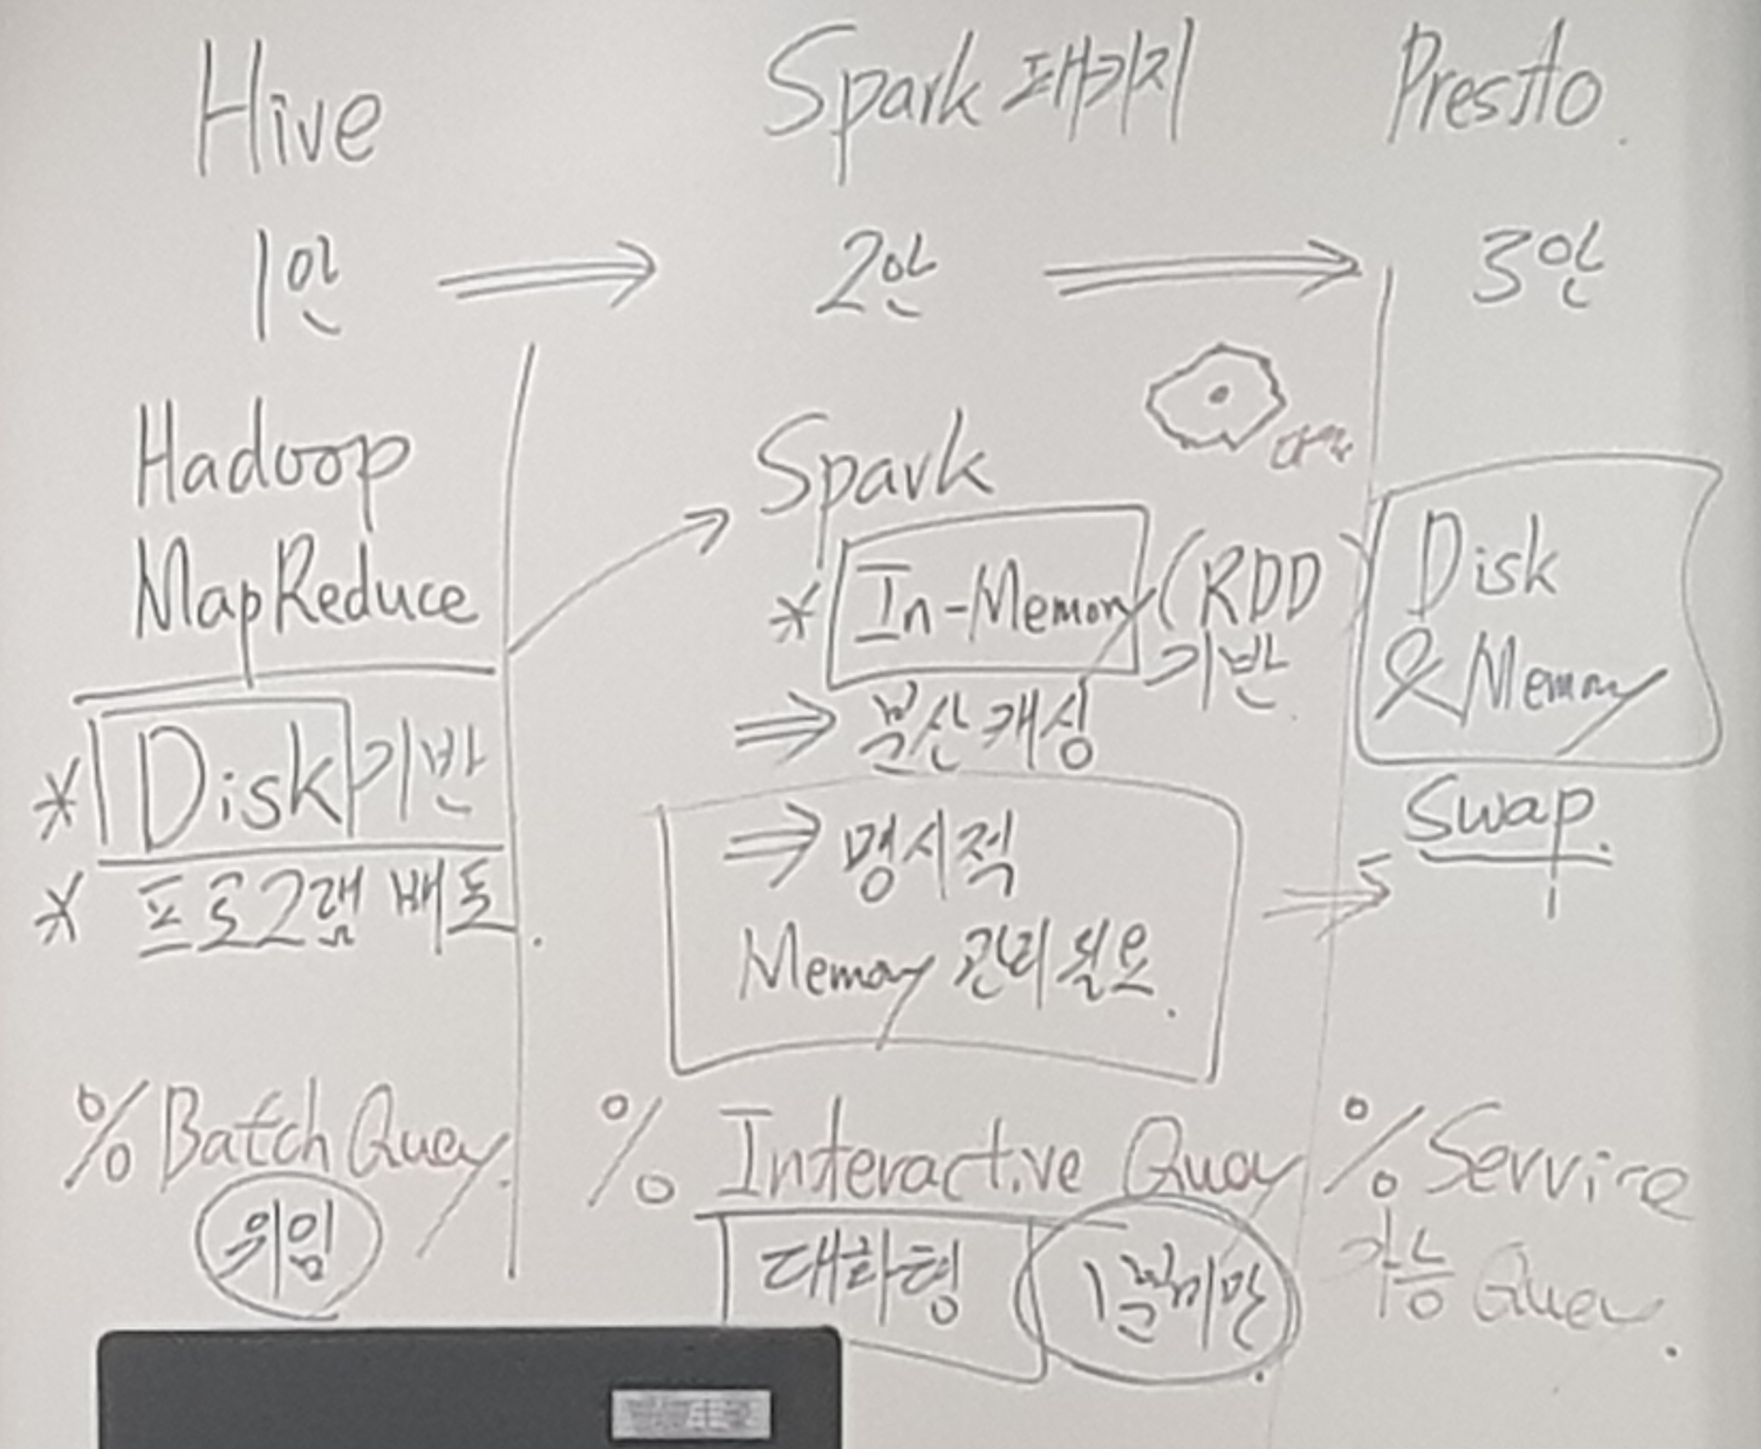 Hive
1안
Hadoop
MapReduce
* Disk 기반
* 프로그램 배포.
% Batch Query.
위임
Spark 패키지
2안
Spark
* In-Memory (RDD
기반
⇒ 분산캐싱
⇒ 명시적
Memory 관리 필요.
% Interactive Query
대화형
1분미만
Prestto.
3안
Disk
& Memory
Swap.
% Service
가능 Query.